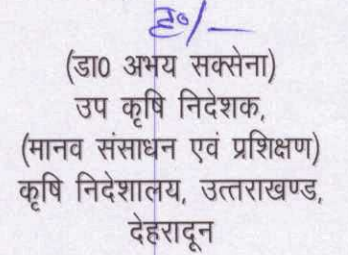 ह०/-
(डा0 अभय सक्सेना)
उप कृषि निदेशक,
(मानव संसाधन एवं प्रशिक्षण)
कृषि निदेशालय, उत्तराखण्ड,
देहरादून